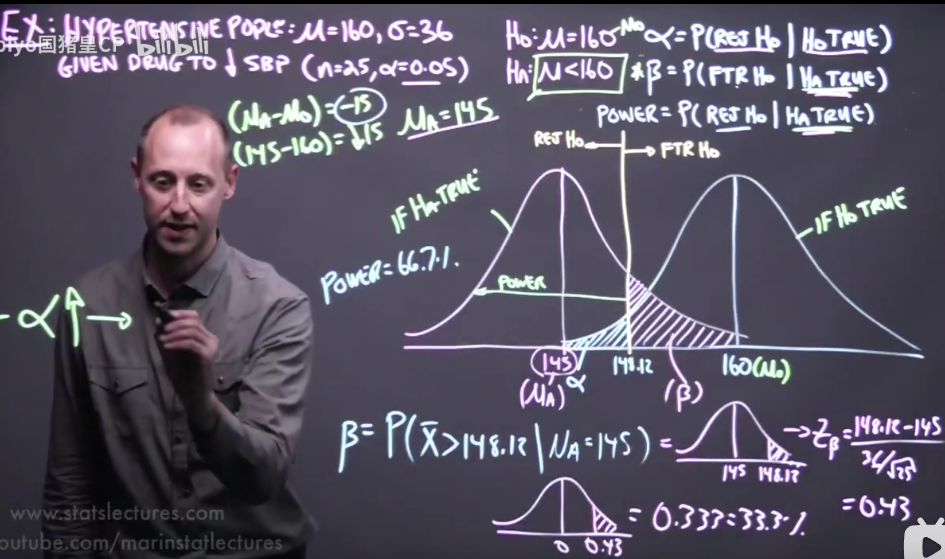 EX: HYPERTENSIVE POPL: μ=160, σ=36
GIVEN DRUG TO ↓ SBP (n=25, α=0.05)
国猪皇CP bilibili
(μA-μ0)=-15
(145-160)=↓15
μA=145
H0: μ=160 μ0
HA: μ<160
α=P(REJ H0 | H0 TRUE)
*β=P(FTR H0 | HA TRUE)
POWER=P(REJ H0 | HA TRUE)
REJ H0 ← → FTR H0
IF HA TRUE
IF H0 TRUE
POWER=66.7%.
POWER
-α↑→
145 148.12 160(μ0)
(μA) α (β)
β=P(X̄>148.12 | μA=145) =
145 148.12
→Zβ=148.12-145
36/√25
=0.43
0 0.43
=0.333=33.3%
www.statslectures.com
youtube.com/marinstatlectures